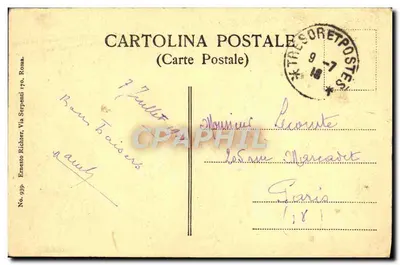 CARTOLINA POSTALE
(Carte Postale)
*TRESOR ET POSTES*
9 -7
18
No. 939. Ernesto Richter, Via Serpenti 170, Roma.
7 Juillet
Bons baisers
Monsieur Lecomte
205 rue Marcadet
Paris
(18)
PRCARTEPOSTALE